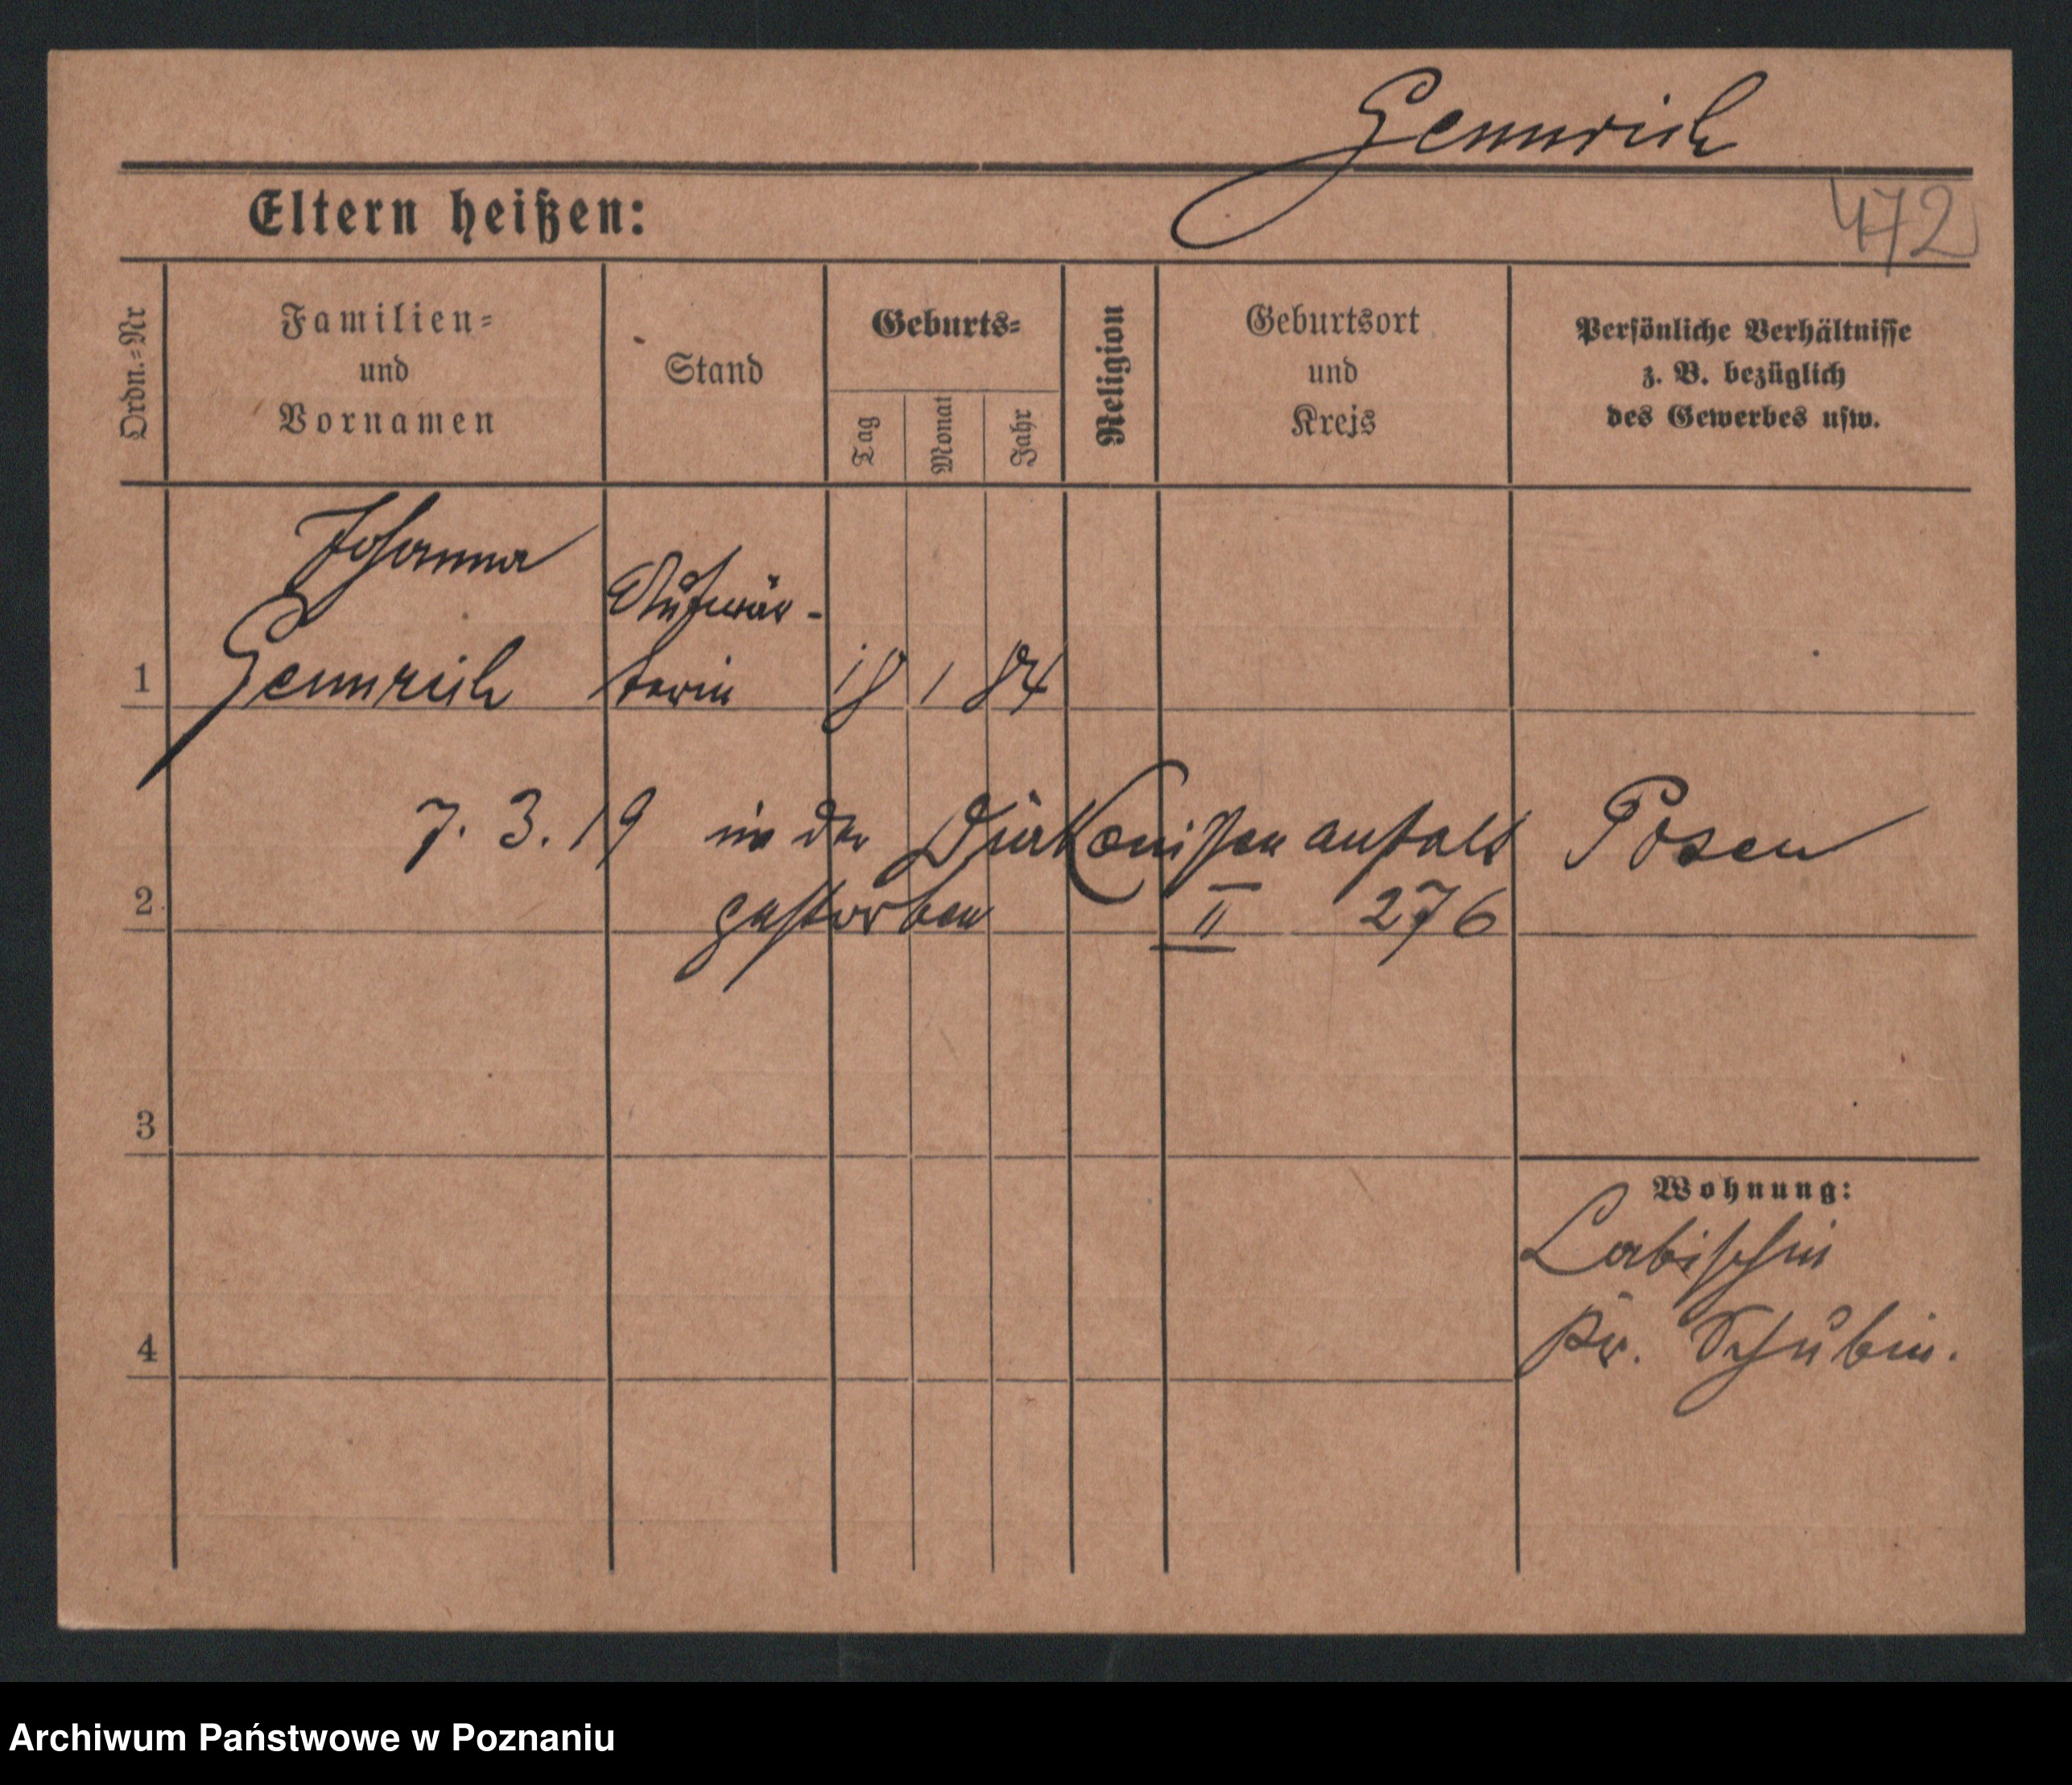 Gennrich
Eltern heißen:
472
Ordn.=Nr
Familien=
und
Vornamen
Stand
Geburts=
Tag
Monat
Jahr
Religion
Geburtsort
und
Kreis
Persönliche Verhältnisse
z. B. bezüglich
des Gewerbes usw.
Johanna
Aufwär-
1 Gennrich terin 18 1 84
7. 3. 19 in der Diakonissenanstalt Posen
2 gestorben II 276
3
Wohnung:
Labischin
4 Kr. Schubin.
Archiwum Państwowe w Poznaniu